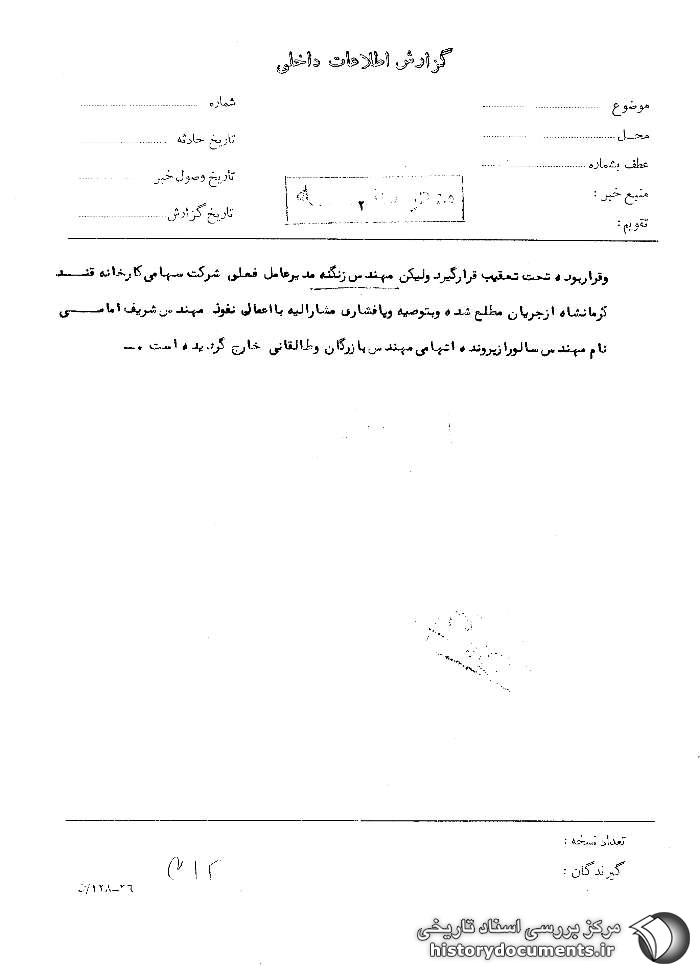 گزارش اطلاعات داخلی
موضوع
شماره
محـل
تاریخ حادثه
عطف بشماره
تاریخ وصول خبر
منبع خبر :
۲
تاریخ گزارش
تقویم :
وقراربوده تحت تعقیب قرارگیرد ولیکن مهندس زنگنه مدیرعامل فعلی شرکت سهامی کارخانه قنـــد
کرمانشاه ازجریان مطلع شده وبتوصیه وپافشاری مشارالیه بااعمال نفوذ مهندس شریف امامـــی
نام مهندس سالوراز پرونده اتهامی مهندس بازرگان وطالقانی خارج گردیده است .ـ
تعداد نسخه :
گیرندگان :
۳۱۲
۱۲۸-۳۶/ن
مرکز بررسی اسناد تاریخی
historydocuments.ir